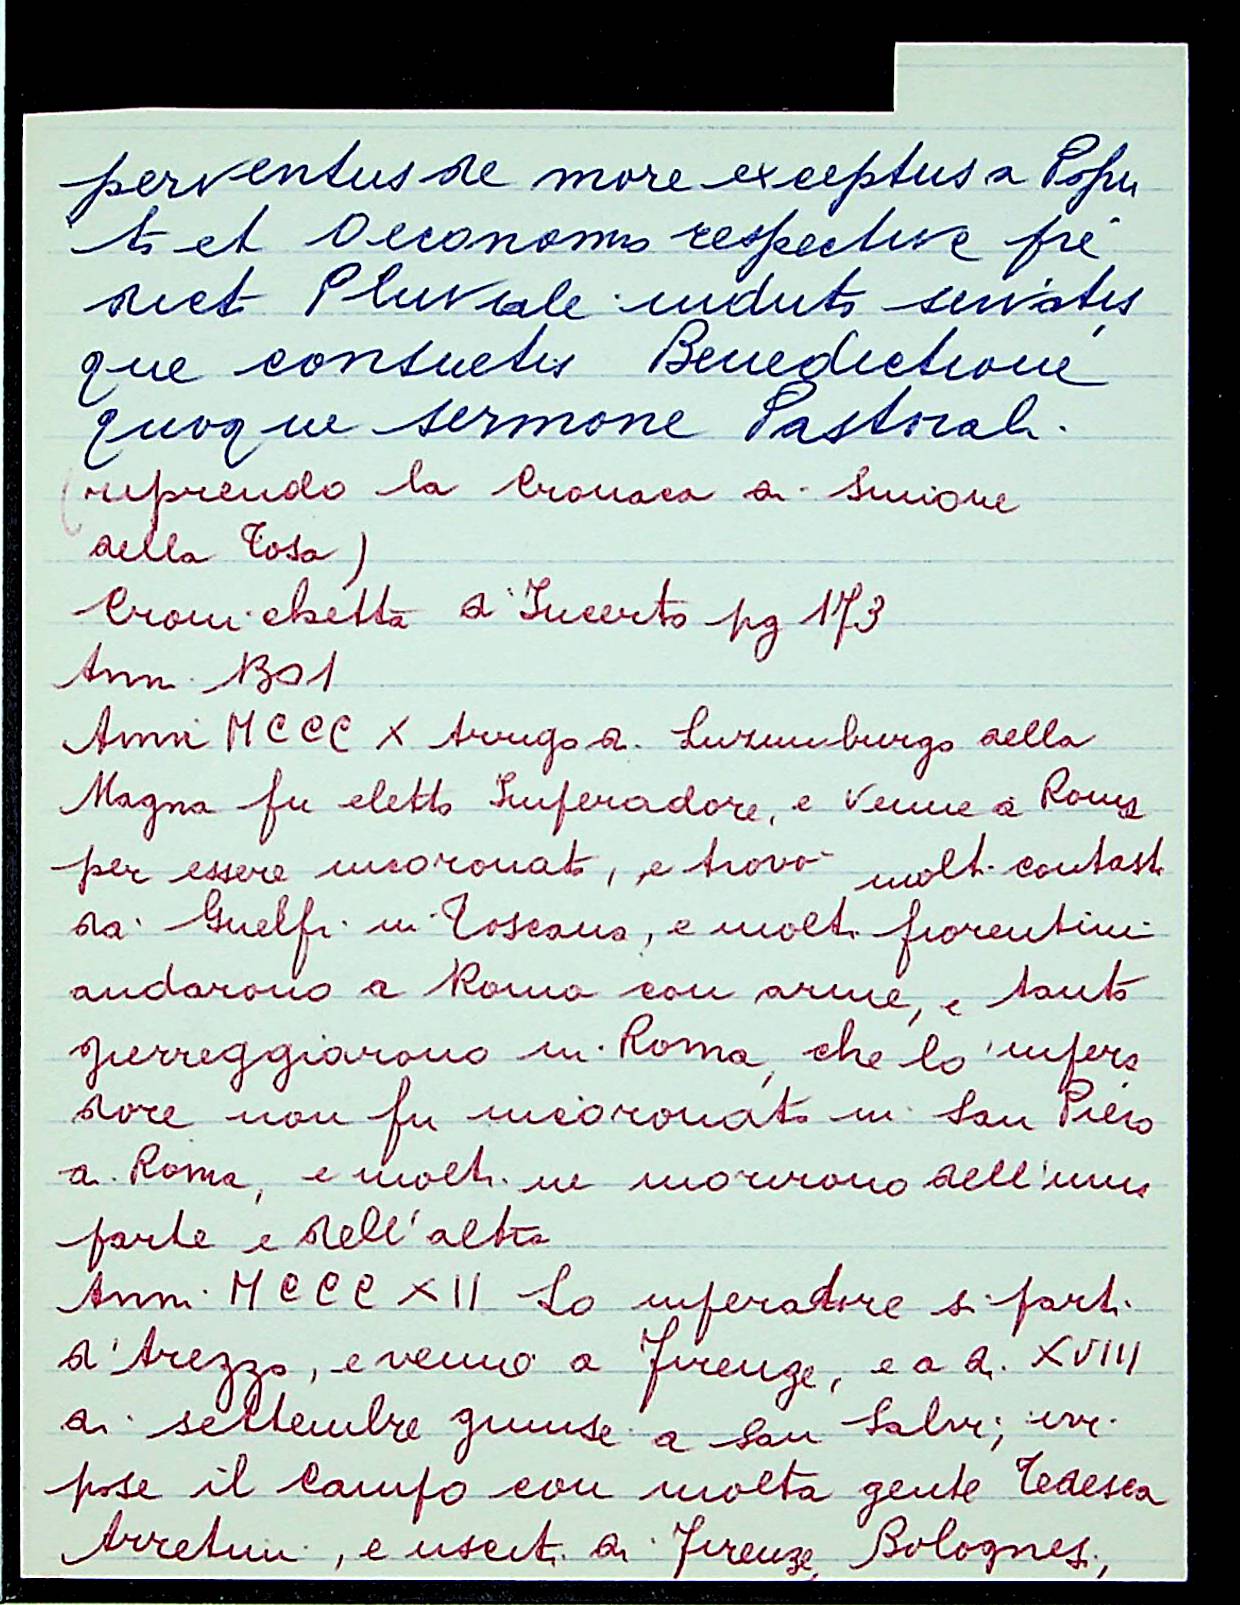 perventus de more exceptus a Popu
lo et Oeconomo respective prae
dict Pluviale induto servatis
que consuetis Benedictione
quoque sermone Pastorali.
(riprendo la Cronaca di Simone
della Tosa)
Cronichetta d'Incerto pg 173
Ann. 1301
Anni MCCCX Arrigo di Luzimburgo della
Magna fu eletto Imperadore, e venne a Roma
per essere incoronato, e trovò molti contasti
da' Guelfi in Toscana, e molti fiorentini
andarono a Roma con arme, e tanto
guerreggiarono in Roma, che lo 'mpera
dore non fu incoronato in San Piero
di Roma, e molti ne morirono dell'una
parte e dell'altra
Anni MCCCXII Lo imperadore si partì
d'Arezzo, e venne a Firenze, e a dì XVIII
di settembre giunse a San Salvi; ivi
pose il Campo con molta gente Tedesca
Arretini, e usciti di Firenze, Bolognesi,